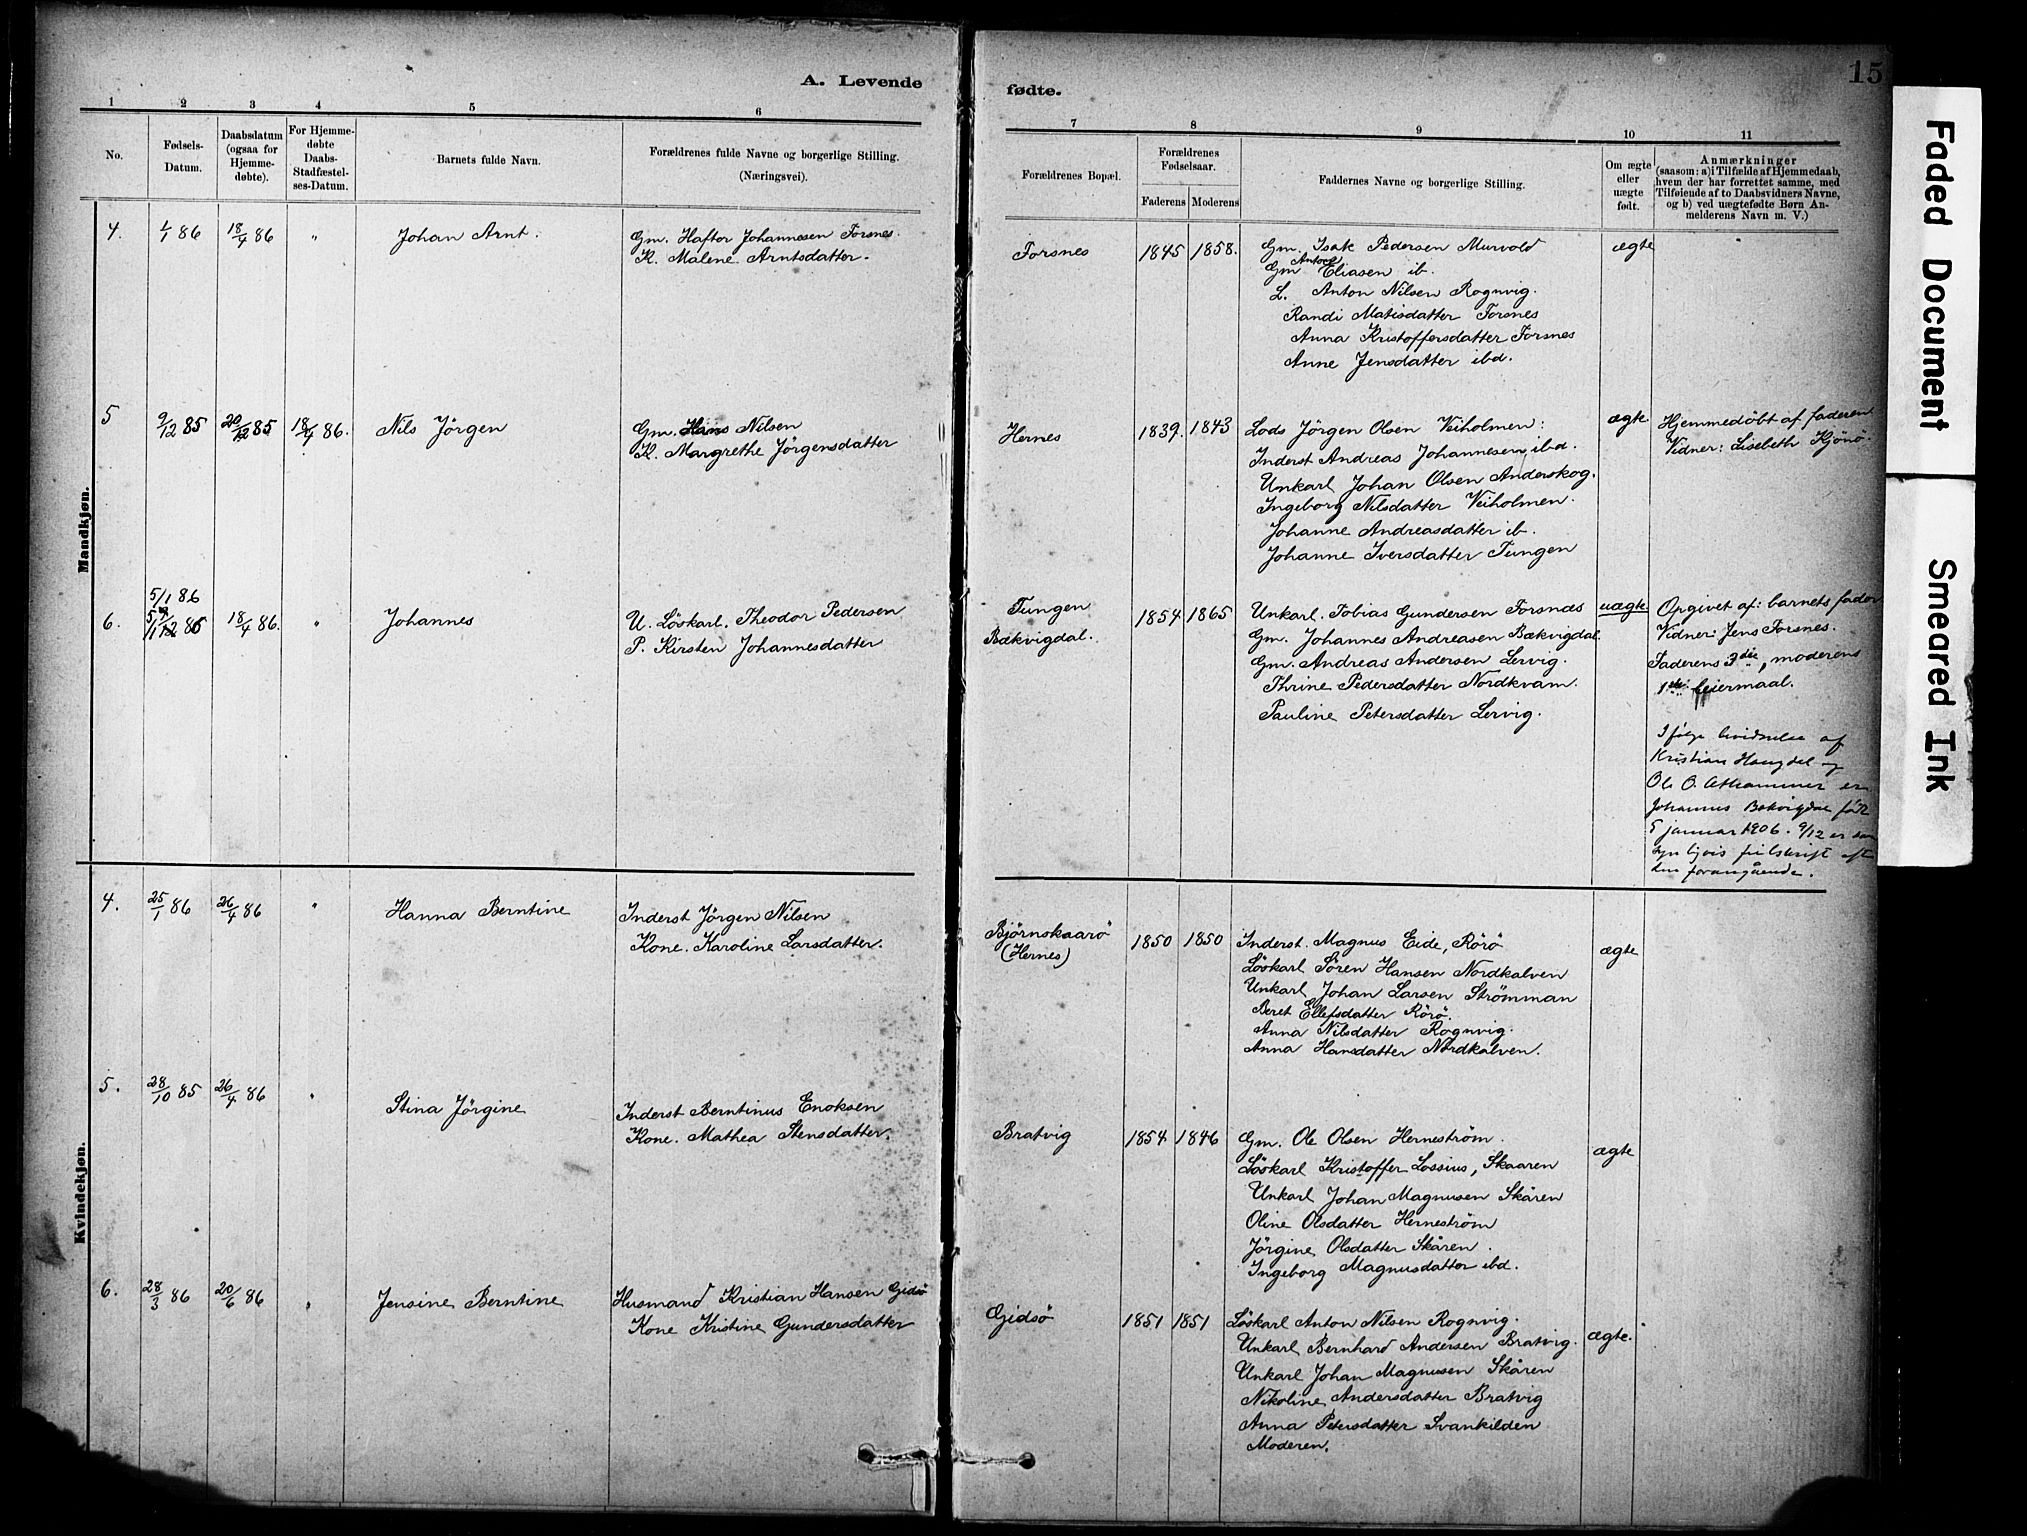 A. Levende fødte.
15
1 2 3 4 5 6 7 8 9 10 11
No.
Fødsels-
Datum.
Daabsdatum
(ogsaa for
Hjemme-
døbte).
For Hjemme-
døbte
Daabs-
Stadfæstel-
ses-Datum.
Barnets fulde Navn.
Forældrenes fulde Navne og borgerlige Stilling.
(Næringsvei).
Forældrenes Bopæl.
Forældrenes
Fødselsaar.
Faderens Moderens
Faddernes Navne og borgerlige Stilling.
Om ægte
eller
uægte
født.
Anmærkninger
(saasom: a) i Tilfælde af Hjemmedaab,
hvem der har forrettet samme, med
Tilføiende af to Daabsvidners Navne,
og b) ved uægtefødte Børn An-
melderens Navn m. V.)
Mandkjøn.
4. 1/1 86 18/4 86 " Johan Arnt.
Gm. Haftor Johannesen Forsnes.
K. Malene Arntsdatter.
Forsnes 1845 1858.
Gm. Isak Pedersen Murvold
Anton
Gm Eliasen ib.
L. Anton Nilsen Rognvig.
Randi Matisdatter Forsnes
Anna Kristoffersdatter Forsnes
Anne Jensdatter ibd.
ægte
5 9/12 85 20/12 85 18/4 86. Nils Jörgen
Gm. Hans Nilsen
K. Margrethe Jörgensdatter
Hernes 1839. 1843
Lods Jörgen Olsen Veiholmen:
Inderst Andreas Johannesen ibd.
Unkarl Johan Olsen Anderskog.
Ingeborg Nilsdatter Veiholmen.
Johanne Andreasdatter ib.
Johanne Iversdatter Tungen
ægte
Hjemmedøbt af faderen
Vidner: Lisebeth Kjönö.
5/1 86
6. 18/4 86. " Johannes
U. Löskarl. Theodor Pedersen
P. Kirsten Johannesdatter
Tungen
Bækvigdal.
1854 1865
Unkarl. Tobias Gundersen Forsnæs
Gm. Johannes Andreasen Bækvigdal
Gm. Andreas Andersen Lervig.
Thrine Pedersdatter Nordkvam.
Pauline Petersdatter Lervig.
uægte
Opgivet af: barnets fader
Vidner: Jens Forsnes.
Faderens 3die, moderens
1ste leiermaal.
Ifølge bevidnelse af
Kristian Haugdal og
Ole O. er
Johannes Bækvigdal født
5 januar 1906. 9/12 er san
synligvis feilskrift efter
den foregående.
Kvindekjøn.
4. 25/1 86 26/4 86 " Hanna Berntine
Inderst Jörgen Nilsen
Kone. Karoline Larsdatter.
Bjørnskaarö
(Hernes)
1850 1850
Inderst. Magnus Eide, Rörö
Löskarl Sören Hansen Nordkalven
Unkarl Johan Larsen Strømman
Beret Ellefsdatter Rörö.
Anna Nilsdatter Rognvig.
Anna Hansdatter Nordkalven.
ægte
5. 28/10 85 26/4 86 " Stina Jörgine
Inderst Berntinus Enoksen
Kone. Mathea Stensdatter.
Bratvig 1854 1846
Gm. Ole Olsen Herneström.
Löskarl Kristoffer Lossius, Skaaren
Unkarl Johan Magnusen Skåren
Oline Olsdatter Herneström
Jörgine Olsdatter Skåren.
Ingeborg Magnusdatter ibd.
ægte
6. 28/3 86 20/6 86 " Jensine Berntine
Husmand Kristian Hansen Gidsö
Kone Kristine Gundersdatter
Gidsö 1851 1851
Löskarl Anton Nilsen Rognvig.
Unkarl Bernhard Andersen Bratvig.
Unkarl Johan Magnusen Skåren
Nikoline Andersdatter Bratvig
Anna Petersdatter Svankilden
Moderen.
ægte.
Faded Document
Smeared Ink